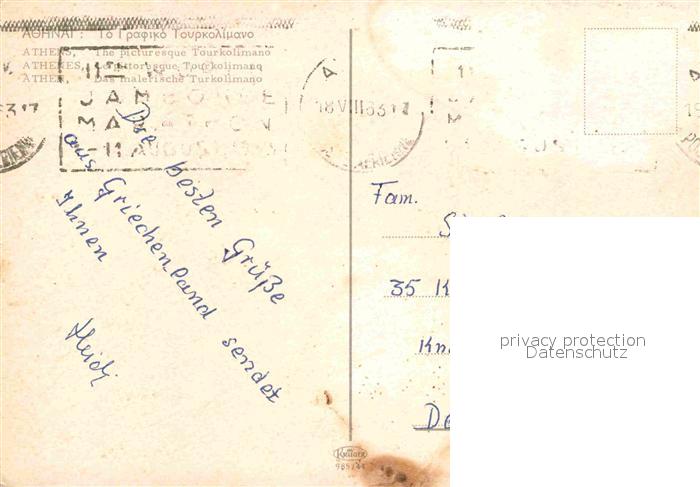 ΑΘΗΝΑΙ : Τὸ Γραφικὸ Τουρκολίμανο
ATHENS, The picturesque Tourkolimano
ATHENES, Le pittoresque Tourkolimano
ATHEN, Das malerische Turkolimano
11
JAMBOREE
MARATHON
AUGUST
18 VIII 63 17
Die besten Grüße
aus Griechenland sendet
Ihnen
Heidi
Fam.
35 K
Kn
D
privacy protection
Datenschutz
985/44